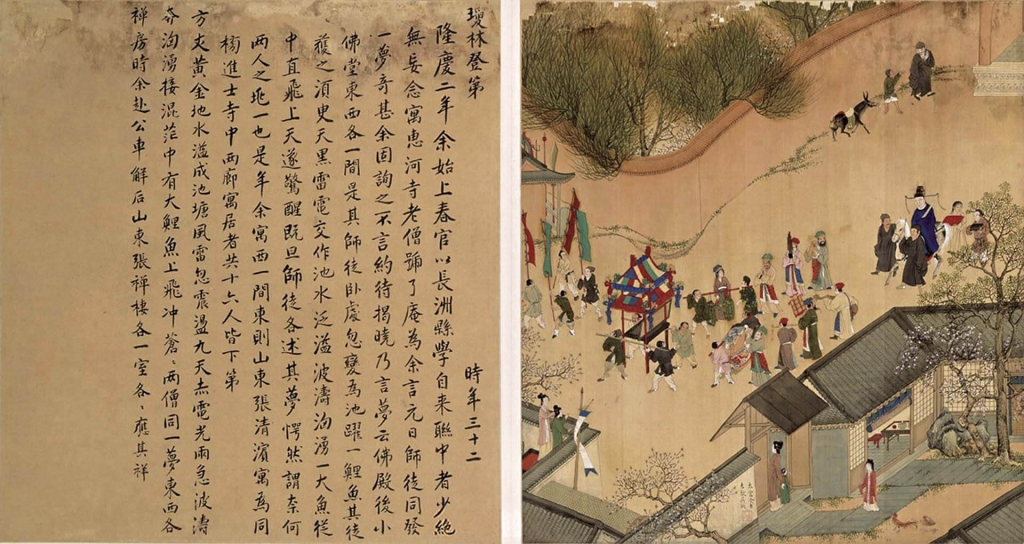 瓊林登第
時年三十二
隆慶二年余始上春官以長洲縣學自来聯中者少絶
無妄念寓惠河寺老僧了庵為余言元日師徒同發
一夢奇甚余固詢之不言約待揭曉乃言夢云佛殿後小
佛堂東西各一間是其師徒卧處忽變為池躍一鯉魚其徒
獲之湏史天黑雷電交作池水泛溢波濤洶湧一大魚從
中直飛上天遂驚醒既旦師徒各述其夢愕然謂奈何
兩人之兆一也是年余寓西一間東則山東張清濱寓焉同
榜進士寺中兩廊寓居者共十六人皆下第
方丈黄金地水溢成池塘風雷忽震盪九天赤電光雨急波濤
奔洶湧接混茫中有大鯉魚上飛冲蒼〻兩僧同一夢東西各
禅房時余赴公車解后山東張禅棲各一室各〻應其祥